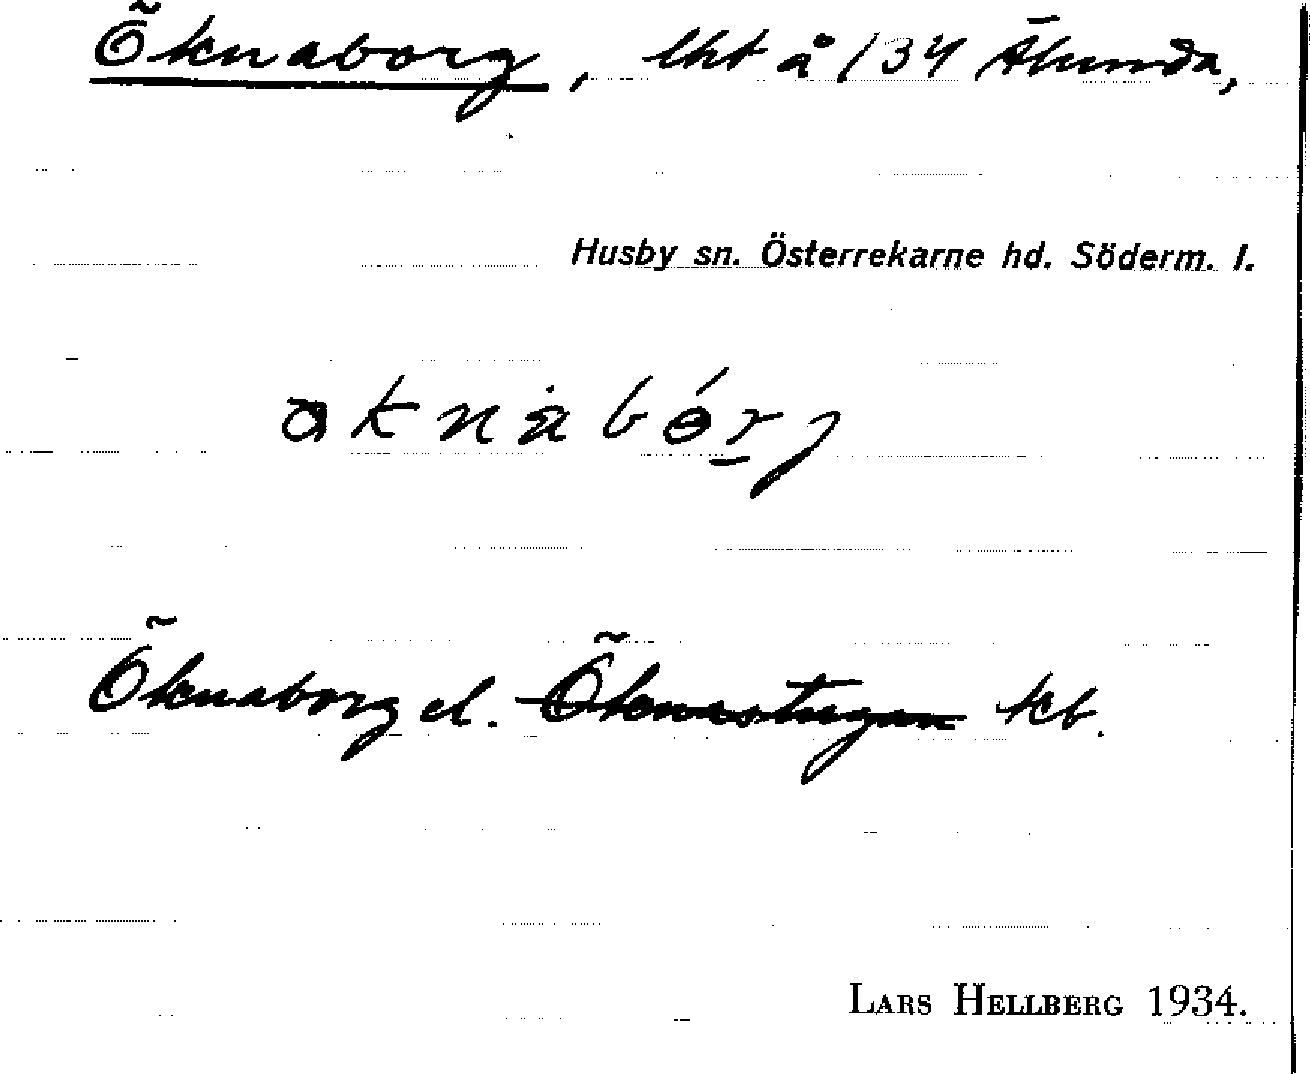 Öknaborg, lht å 134 Älunda,
Husby sn. Österrekarne hd. Söderm. l.
Öknaborg el. Öknastugan kb.
LARS HELLBERG 1934.